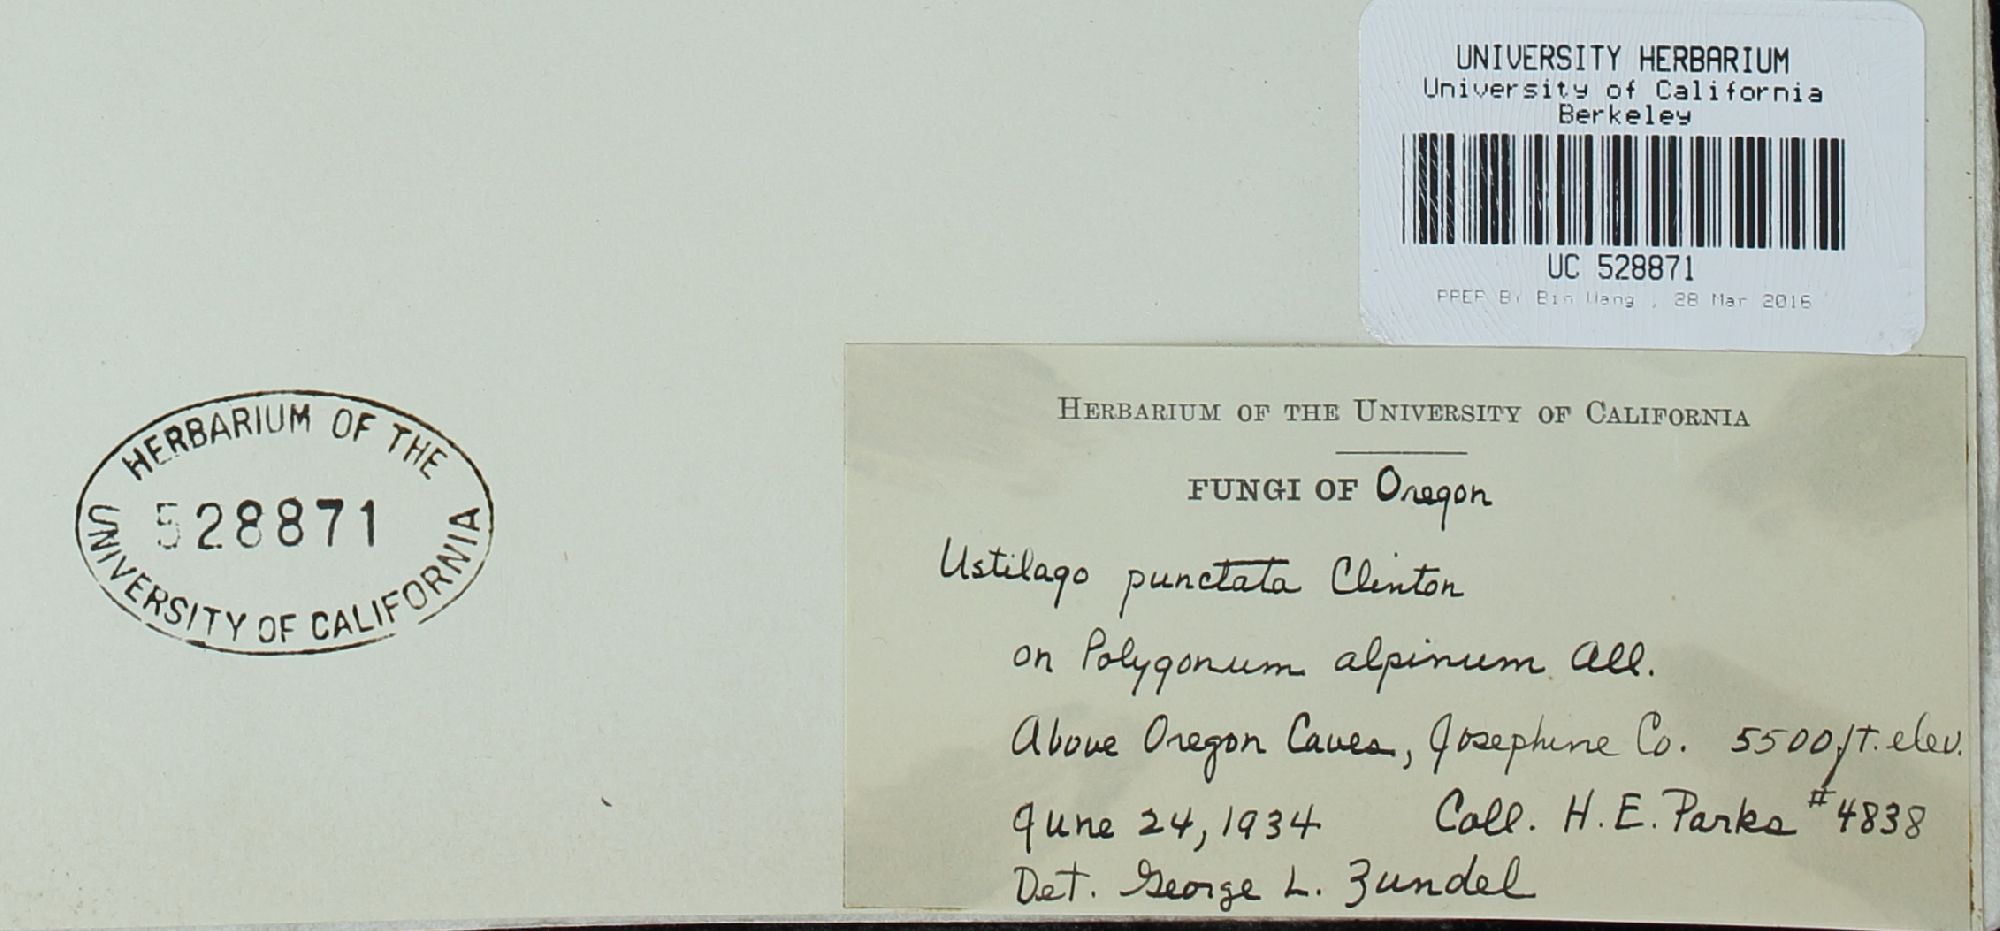 UNIVERSITY HERBARIUM
University of California
Berkeley
UC 528871
PREP BY Bin Wang , 28 Mar 2016
HERBARIUM OF THE UNIVERSITY OF CALIFORNIA
FUNGI OF Oregon
Ustilago punctata Clinton
on Polygonum alpinum All.
Above Oregon Caves, Josephine Co. 5500 ft. elev.
June 24, 1934 Coll. H. E. Parks #4838
Det. George L. Zundel
HERBARIUM OF THE
528871
UNIVERSITY OF CALIFORNIA